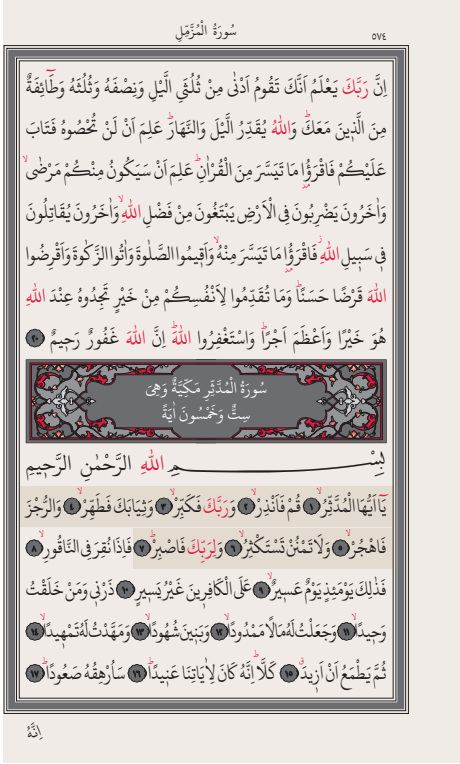 سُورَةُ الْمُزَّمِّلِ
٥٧٤
اِنَّ رَبَّكَ يَعْلَمُ اَنَّكَ تَقُومُ اَدْنٰى مِنْ ثُلُثَيِ الَّيْلِ وَنِصْفَهُ وَثُلُثَهُ وَطَٓائِفَةٌ
مِنَ الَّذِينَ مَعَكَۜ وَاللّٰهُ يُقَدِّرُ الَّيْلَ وَالنَّهَارَۜ عَلِمَ اَنْ لَنْ تُحْصُوهُ فَتَابَ
عَلَيْكُمْ فَاقْرَؤُ۫ا مَا تَيَسَّرَ مِنَ الْقُرْاٰنِۜ عَلِمَ اَنْ سَيَكُونُ مِنْكُمْ مَرْضٰىۙ
وَاٰخَرُونَ يَضْرِبُونَ فِي الْاَرْضِ يَبْتَغُونَ مِنْ فَضْلِ اللّٰهِۙ وَاٰخَرُونَ يُقَاتِلُونَ
ف۪ي سَب۪يلِ اللّٰهِۘ فَاقْرَؤُ۫ا مَا تَيَسَّرَ مِنْهُۙ وَاَق۪يمُوا الصَّلٰوةَ وَاٰتُوا الزَّكٰوةَ وَاَقْرِضُوا
اللّٰهَ قَرْضًا حَسَنًاۜ وَمَا تُقَدِّمُوا لِاَنْفُسِكُمْ مِنْ خَيْرٍ تَجِدُوهُ عِنْدَ اللّٰهِ
هُوَ خَيْرًا وَاَعْظَمَ اَجْرًاۜ وَاسْتَغْفِرُوا اللّٰهَۜ اِنَّ اللّٰهَ غَفُورٌ رَح۪يمٌ ٢٠
سُورَةُ الْمُدَّثِّرِ مَكِّيَّةٌ وَهِيَ
سِتٌّ وَخَمْسُونَ اٰيَةً
بِسْمِ اللّٰهِ الرَّحْمٰنِ الرَّح۪يمِ
يَٓا اَيُّهَا الْمُدَّثِّرُۙ ١ قُمْ فَاَنْذِرْۙ ٢ وَرَبَّكَ فَكَبِّرْۙ ٣ وَثِيَابَكَ فَطَهِّرْۙ ٤ وَالرُّجْزَ
فَاهْجُرْۙ ٥ وَلَا تَمْنُنْ تَسْتَكْثِرُۙ ٦ وَلِرَبِّكَ فَاصْبِرْۜ ٧ فَاِذَا نُقِرَ فِي النَّاقُورِۙ ٨
فَذٰلِكَ يَوْمَئِذٍ يَوْمٌ عَس۪يرٌۙ ٩ عَلَى الْكَافِر۪ينَ غَيْرُ يَس۪يرٍ ١٠ ذَرْن۪ي وَمَنْ خَلَقْتُ
وَح۪يدًاۙ ١١ وَجَعَلْتُ لَهُ مَالًا مَمْدُودًاۙ ١٢ وَبَن۪ينَ شُهُودًاۙ ١٣ وَمَهَّدْتُ لَهُ تَمْه۪يدًاۙ ١٤
ثُمَّ يَطْمَعُ اَنْ اَز۪يدَۗ ١٥ كَلَّاۜ اِنَّهُ كَانَ لِاٰيَاتِنَا عَن۪يدًاۜ ١٦ سَاُرْهِقُهُ صَعُودًاۜ ١٧
اِنَّهُ